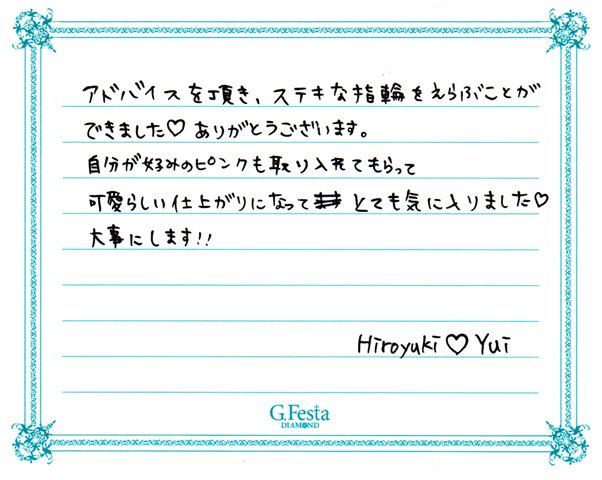 アドバイスを頂き、ステキな指輪をえらぶことが
できました♡ありがとうございます。
自分が好みのピンクも取り入れてもらって
可愛らしい仕上がりになって とても気に入りました♡
大事にします!!
Hiroyuki♡Yui
G.Festa
DIAMOND